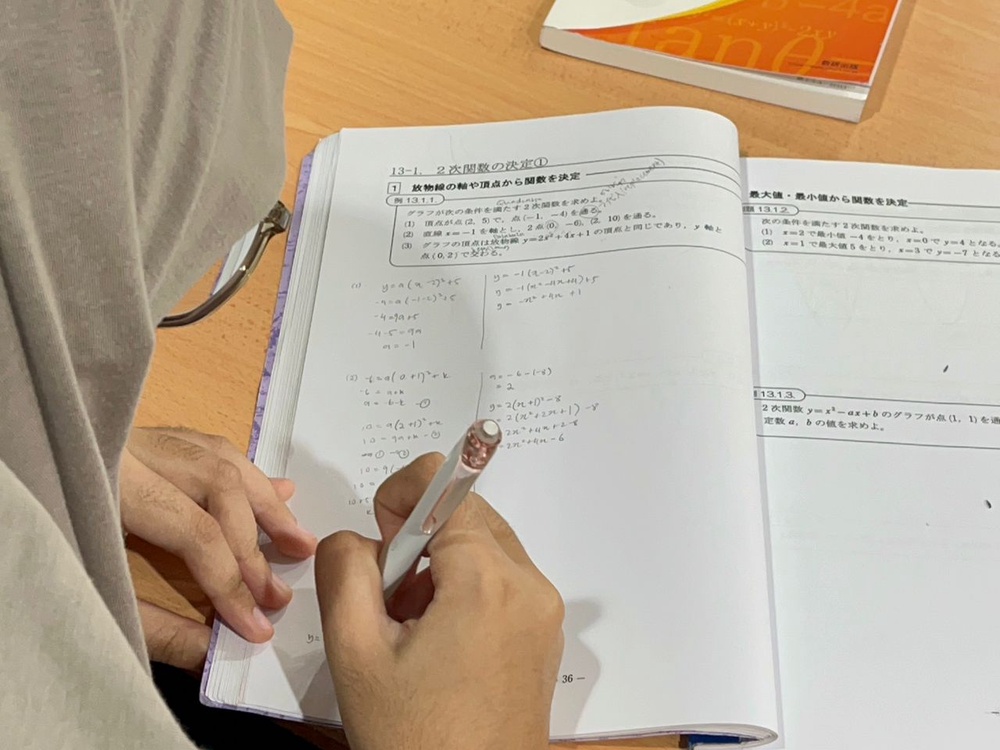 tanθ
数研出版
13-1. 2次関数の決定①
1 放物線の軸や頂点から関数を決定
例 13.1.1.
Quadratic
グラフが次の条件を満たす2次関数を求めよ。
(1) 頂点が点(2, 5)で、点(−1, −4)を通る。
(2) 直線 x=−1 を軸とし、2点(0, −6), (2, 10)を通る。
(3) グラフの頂点は放物線 y=2x²+4x+1 の頂点と同じであり、y 軸と
点(0, 2)で交わる。
(1) y=a(x-2)²+5
-4=a(-1-2)²+5
-4=9a+5
-4-5=9a
a=-1
y=-1(x-2)²+5
y=-1(x²-4x+4)+5
y=-x²+4x+1
(2) -6=a(0+1)²+k
-6=a+k
a=-6-k -①
10=a(2+1)²+k
10=9a+k-②
10=9(-
k
a=-6-(-8)
=2
y=2(x+1)²-8
2(x²+2x+1)-8
2x²+4x+2-8
2x²+4x-6
y=
36 −
最大値・最小値から関数を決定
13.1.2.
次の条件を満たす2次関数を求めよ。
(1) x=2で最小値−4をとり、x=0でy=4となる
(2) x=1で最大値5をとり、x=3でy=−7となる
13.1.3.
2次関数 y=x²−ax+b のグラフが点(1, 1)を通
定数 a, b の値を求めよ。